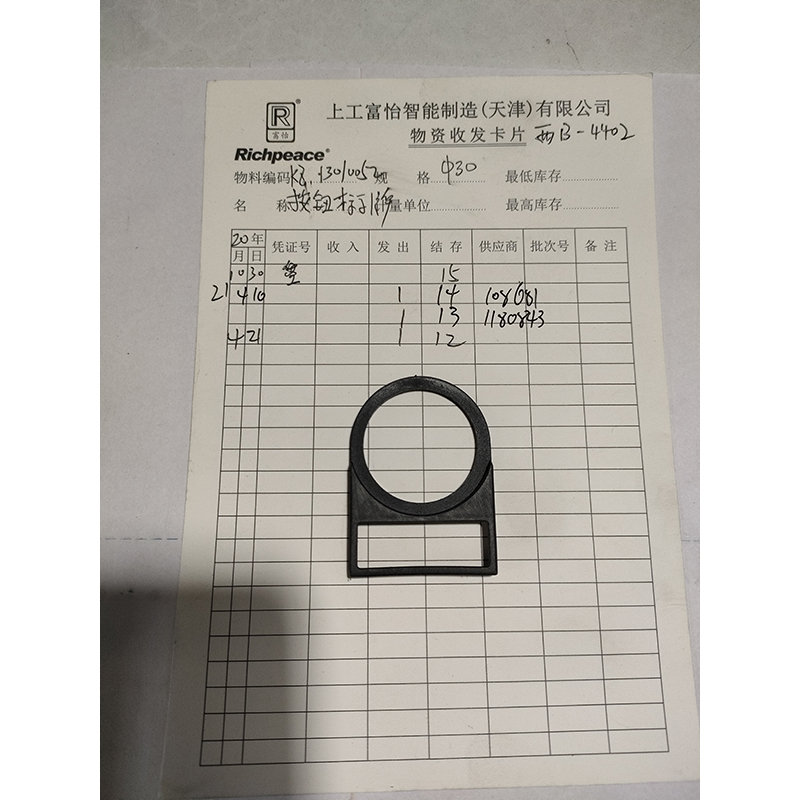 上工富怡智能制造(天津)有限公司
R®
富怡
物资收发卡片 西B-4402
Richpeace®
物料编码 规格 Φ30 最低库存
名称 按钮标示牌 计量单位 最高库存
20年 凭证号 收入 发出 结存 供应商 批次号 备注
月 日
10 30 15
21 4 10 1 14 108681
1 13 1180843
4 21 1 12